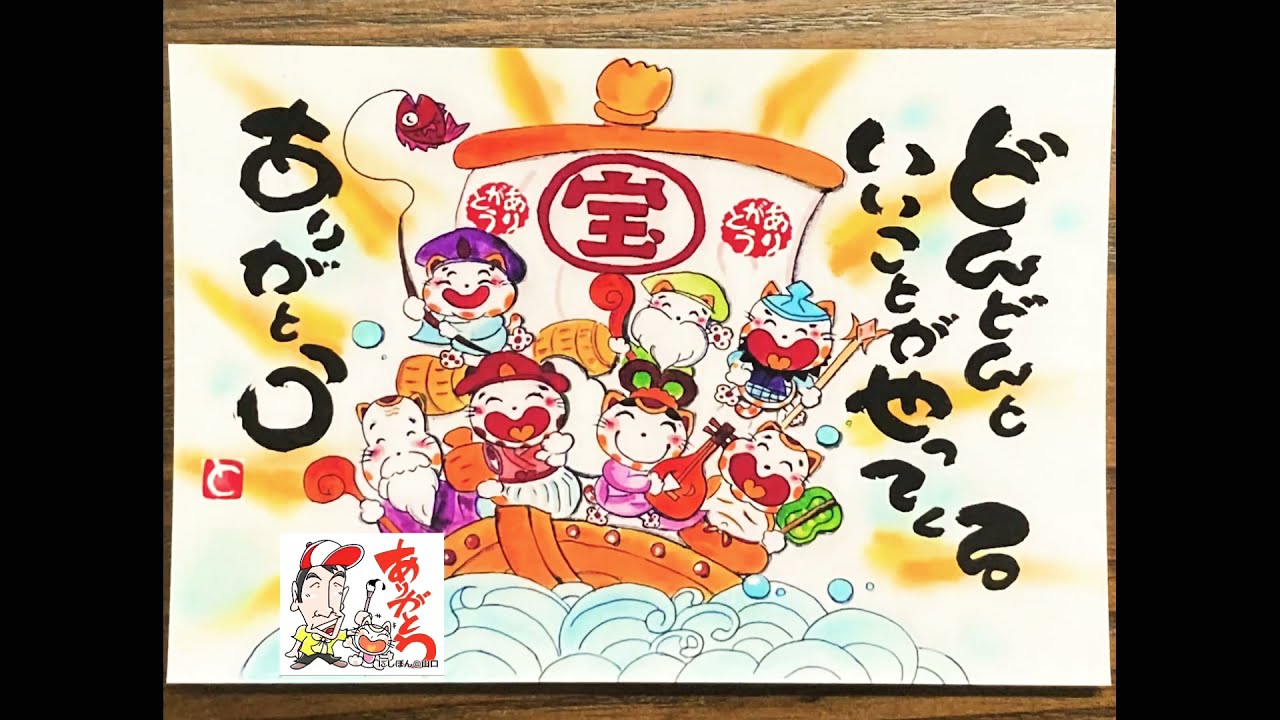 どんどんと
いいことがやってくる
宝
ありがとう
ありがとう
ありがとう
と
ありがとう
にしぽん@山口